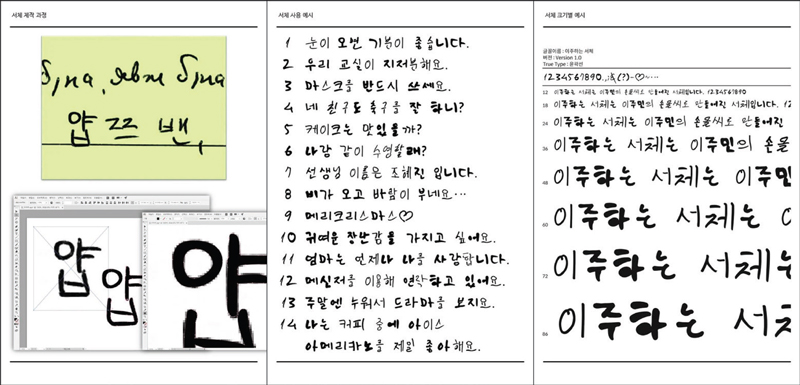 서체 제작 과정
얍 쯔 밴,
얍
얍
얍
서체 사용 예시
1 눈이 오면 기분이 좋습니다.
2 우리 교실이 지저분해요.
3 마스크를 반드시 쓰세요.
4 네 친구도 축구를 잘 하니?
5 케이크는 맛있을까?
6 나랑 같이 수영할래?
7 선생님 이름은 조혜진 입니다.
8 비가 오고 바람이 부네요...
9 메리크리스마스♡
10 귀여운 장난감을 가지고 싶어요.
11 엄마는 언제나 나를 사랑합니다.
12 메신저를 이용해 연락하고 있어요.
13 주말엔 누워서 드라마를 보지요.
14 나는 커피 중에 아이스
아메리카노를 제일 좋아해요.
서체 크기별 예시
글꼴이름 : 이주하는 서체
버전 : Version 1.0
True Type : 윤곽선
12 이주하는 서체는 이주민의 손글씨로 만들어진 서체입니다. 1234567890
18 이주하는 서체는 이주민의 손글씨로 만들어진 서체입니다.
24 이주하는 서체는 이주민의 손글씨로 만들어진
36 이주하는 서체는 이주민의 손글
48 이주하는 서체는 이주민
60 이주하는 서체는
72 이주하는 서체
86 이주하는 서